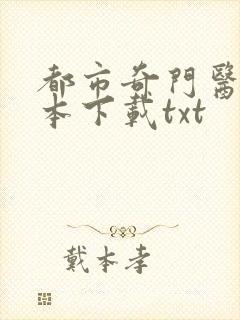 都市奇門醫
本下載txt
戴本孝